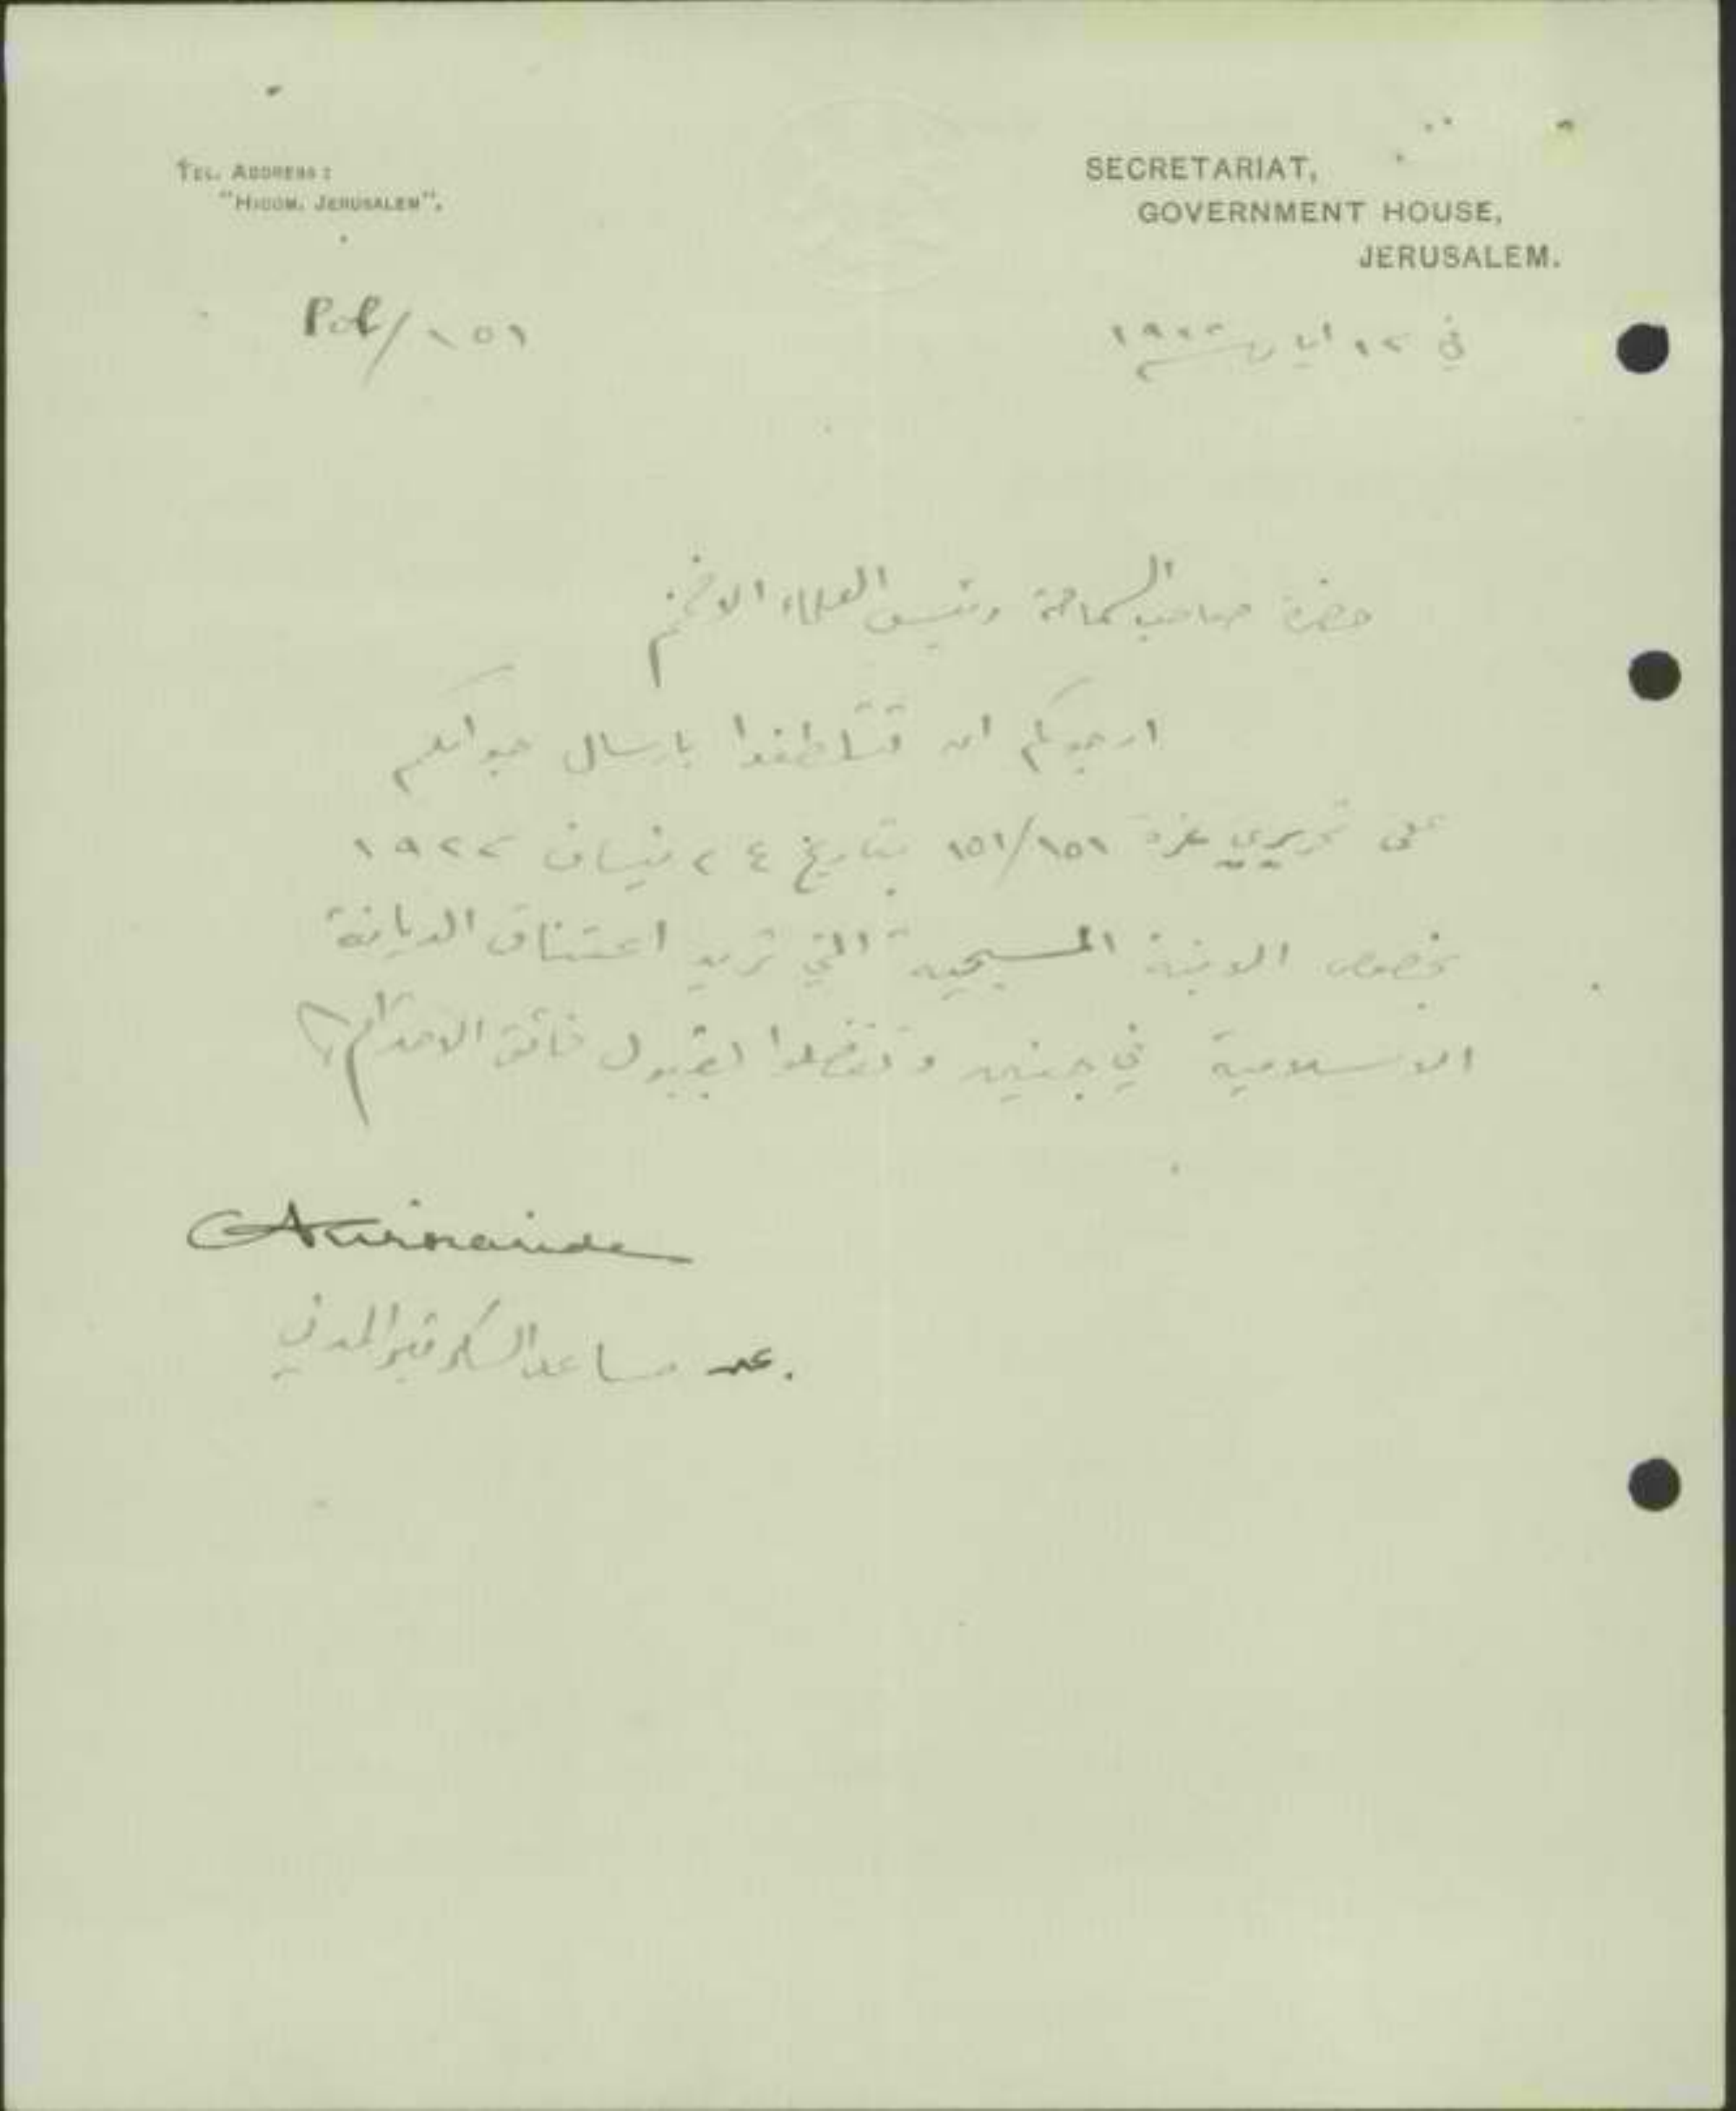 TEL. ADDRESS:
"HICOM, JERUSALEM".
SECRETARIAT,
GOVERNMENT HOUSE,
JERUSALEM.
Pol/١٥١
في ١٢ ايار سنة ١٩٢٢
حضرة صاحب السماحة رئيس العلماء الافخم
ارجوكم ان تتلطفوا بارسال جوابكم
على تحريري نمرة ١٥١/١٥١ بتاريخ ٢٤ نيسان ١٩٢٢
بخصوص الابنة المسيحية التي تريد اعتناق الديانة
الاسلامية في جنين وتفضلوا بقبول فائق الاحترام
عن مساعد السكرتير المدني